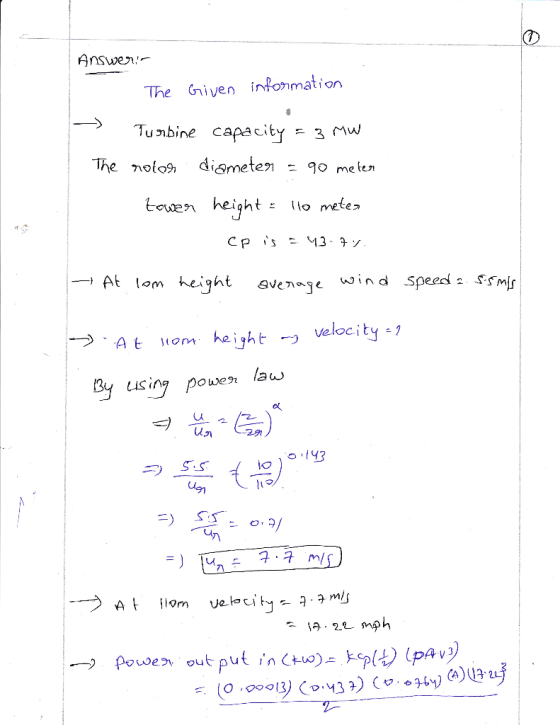 ①
Answer:-
The Given information
→ Turbine capacity = 3 MW
The rotor diameter = 90 meter
tower height = 110 meter
Cp is = 43.7%
→ At 10m height average wind speed = 5.5 m/s
→ At 110m height → velocity = ?
By using power law
⇒ u/ur = (z/zr)^α
⇒ 5.5/ur = (10/110)^0.143
⇒ 5.5/ur = 0.71
⇒ ur = 7.7 m/s
→ At 110m velocity = 7.7 m/s
= 17.22 mph
→ Power output in (kW) = kcp(1/2) (ρAV3)
= (0.00013) (0.437) (0.0764) (A) (17.22)^3
2